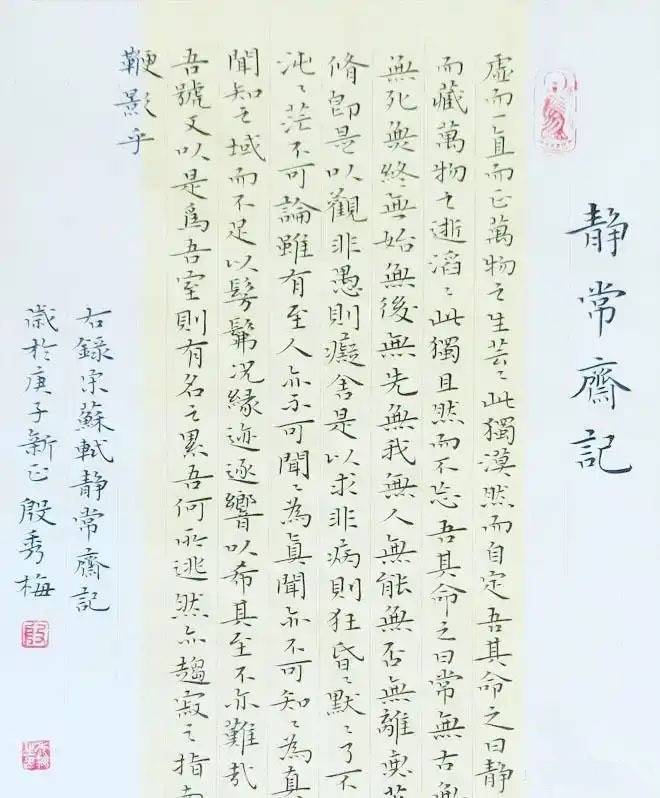 静常齋記
虛而一直而正萬物之生芸〻此獨漠然而自定吾其命之曰静
而藏萬物之逝滔〻此獨且然而不忘吾其命之曰常無古無
無死無終無始無後無先無我無人無能無否無離無著
脩即是以觀非愚則癡舍是以求非病則狂昏〻默〻了不
沌〻茫不可論雖有至人亦不可聞〻為真聞亦不可知〻為真
聞知之域而不足以髣髴况緣迹逐響以希其至不亦難哉
吾號又以是爲吾室則有名之累吾何所逃然亦趨寂之指南
鞭影乎
右錄宋蘇軾静常齋記
歲於庚子新正殷秀梅
殷